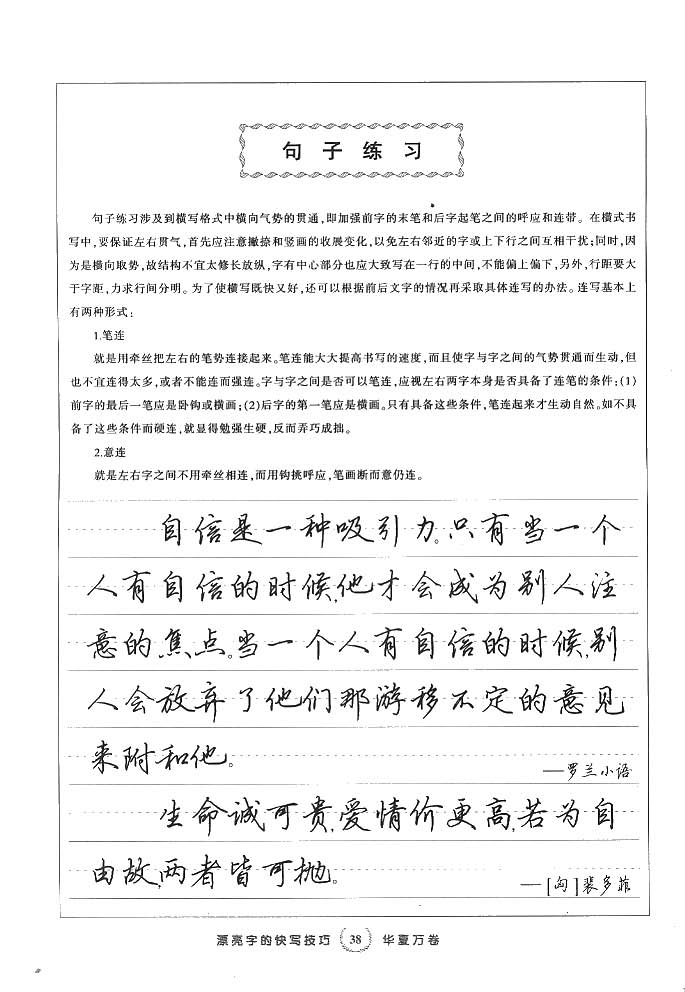 句子练习
句子练习涉及到横写格式中横向气势的贯通,即加强前字的末笔和后字起笔之间的呼应和连带。在横式书
写中,要保证左右贯气,首先应注意撇捺和竖画的收展变化,以免左右邻近的字或上下行之间互相干扰;同时,因
为是横向取势,故结构不宜太修长放纵,字有中心部分也应大致写在一行的中间,不能偏上偏下,另外,行距要大
于字距,力求行间分明。为了使横写既快又好,还可以根据前后文字的情况再采取具体连写的办法。连写基本上
有两种形式:
1.笔连
就是用牵丝把左右的笔势连接起来。笔连能大大提高书写的速度,而且使字与字之间的气势贯通而生动,但
也不宜连得太多,或者不能连而强连。字与字之间是否可以笔连,应视左右两字本身是否具备了连笔的条件:(1)
前字的最后一笔应是卧钩或横画;(2)后字的第一笔应是横画。只有具备这些条件,笔连起来才生动自然。如不具
备了这些条件而硬连,就显得勉强生硬,反而弄巧成拙。
2.意连
就是左右字之间不用牵丝相连,而用钩挑呼应,笔画断而意仍连。
自信是一种吸引力。只有当一个
人有自信的时候,他才会成为别人注
意的焦点。当一个人有自信的时候,别
人会放弃了他们那游移不定的意见
来附和他。
—罗兰小语
生命诚可贵,爱情价更高,若为自
由故,两者皆可抛。
—[匈]裴多菲
漂亮字的快写技巧 38 华夏万卷